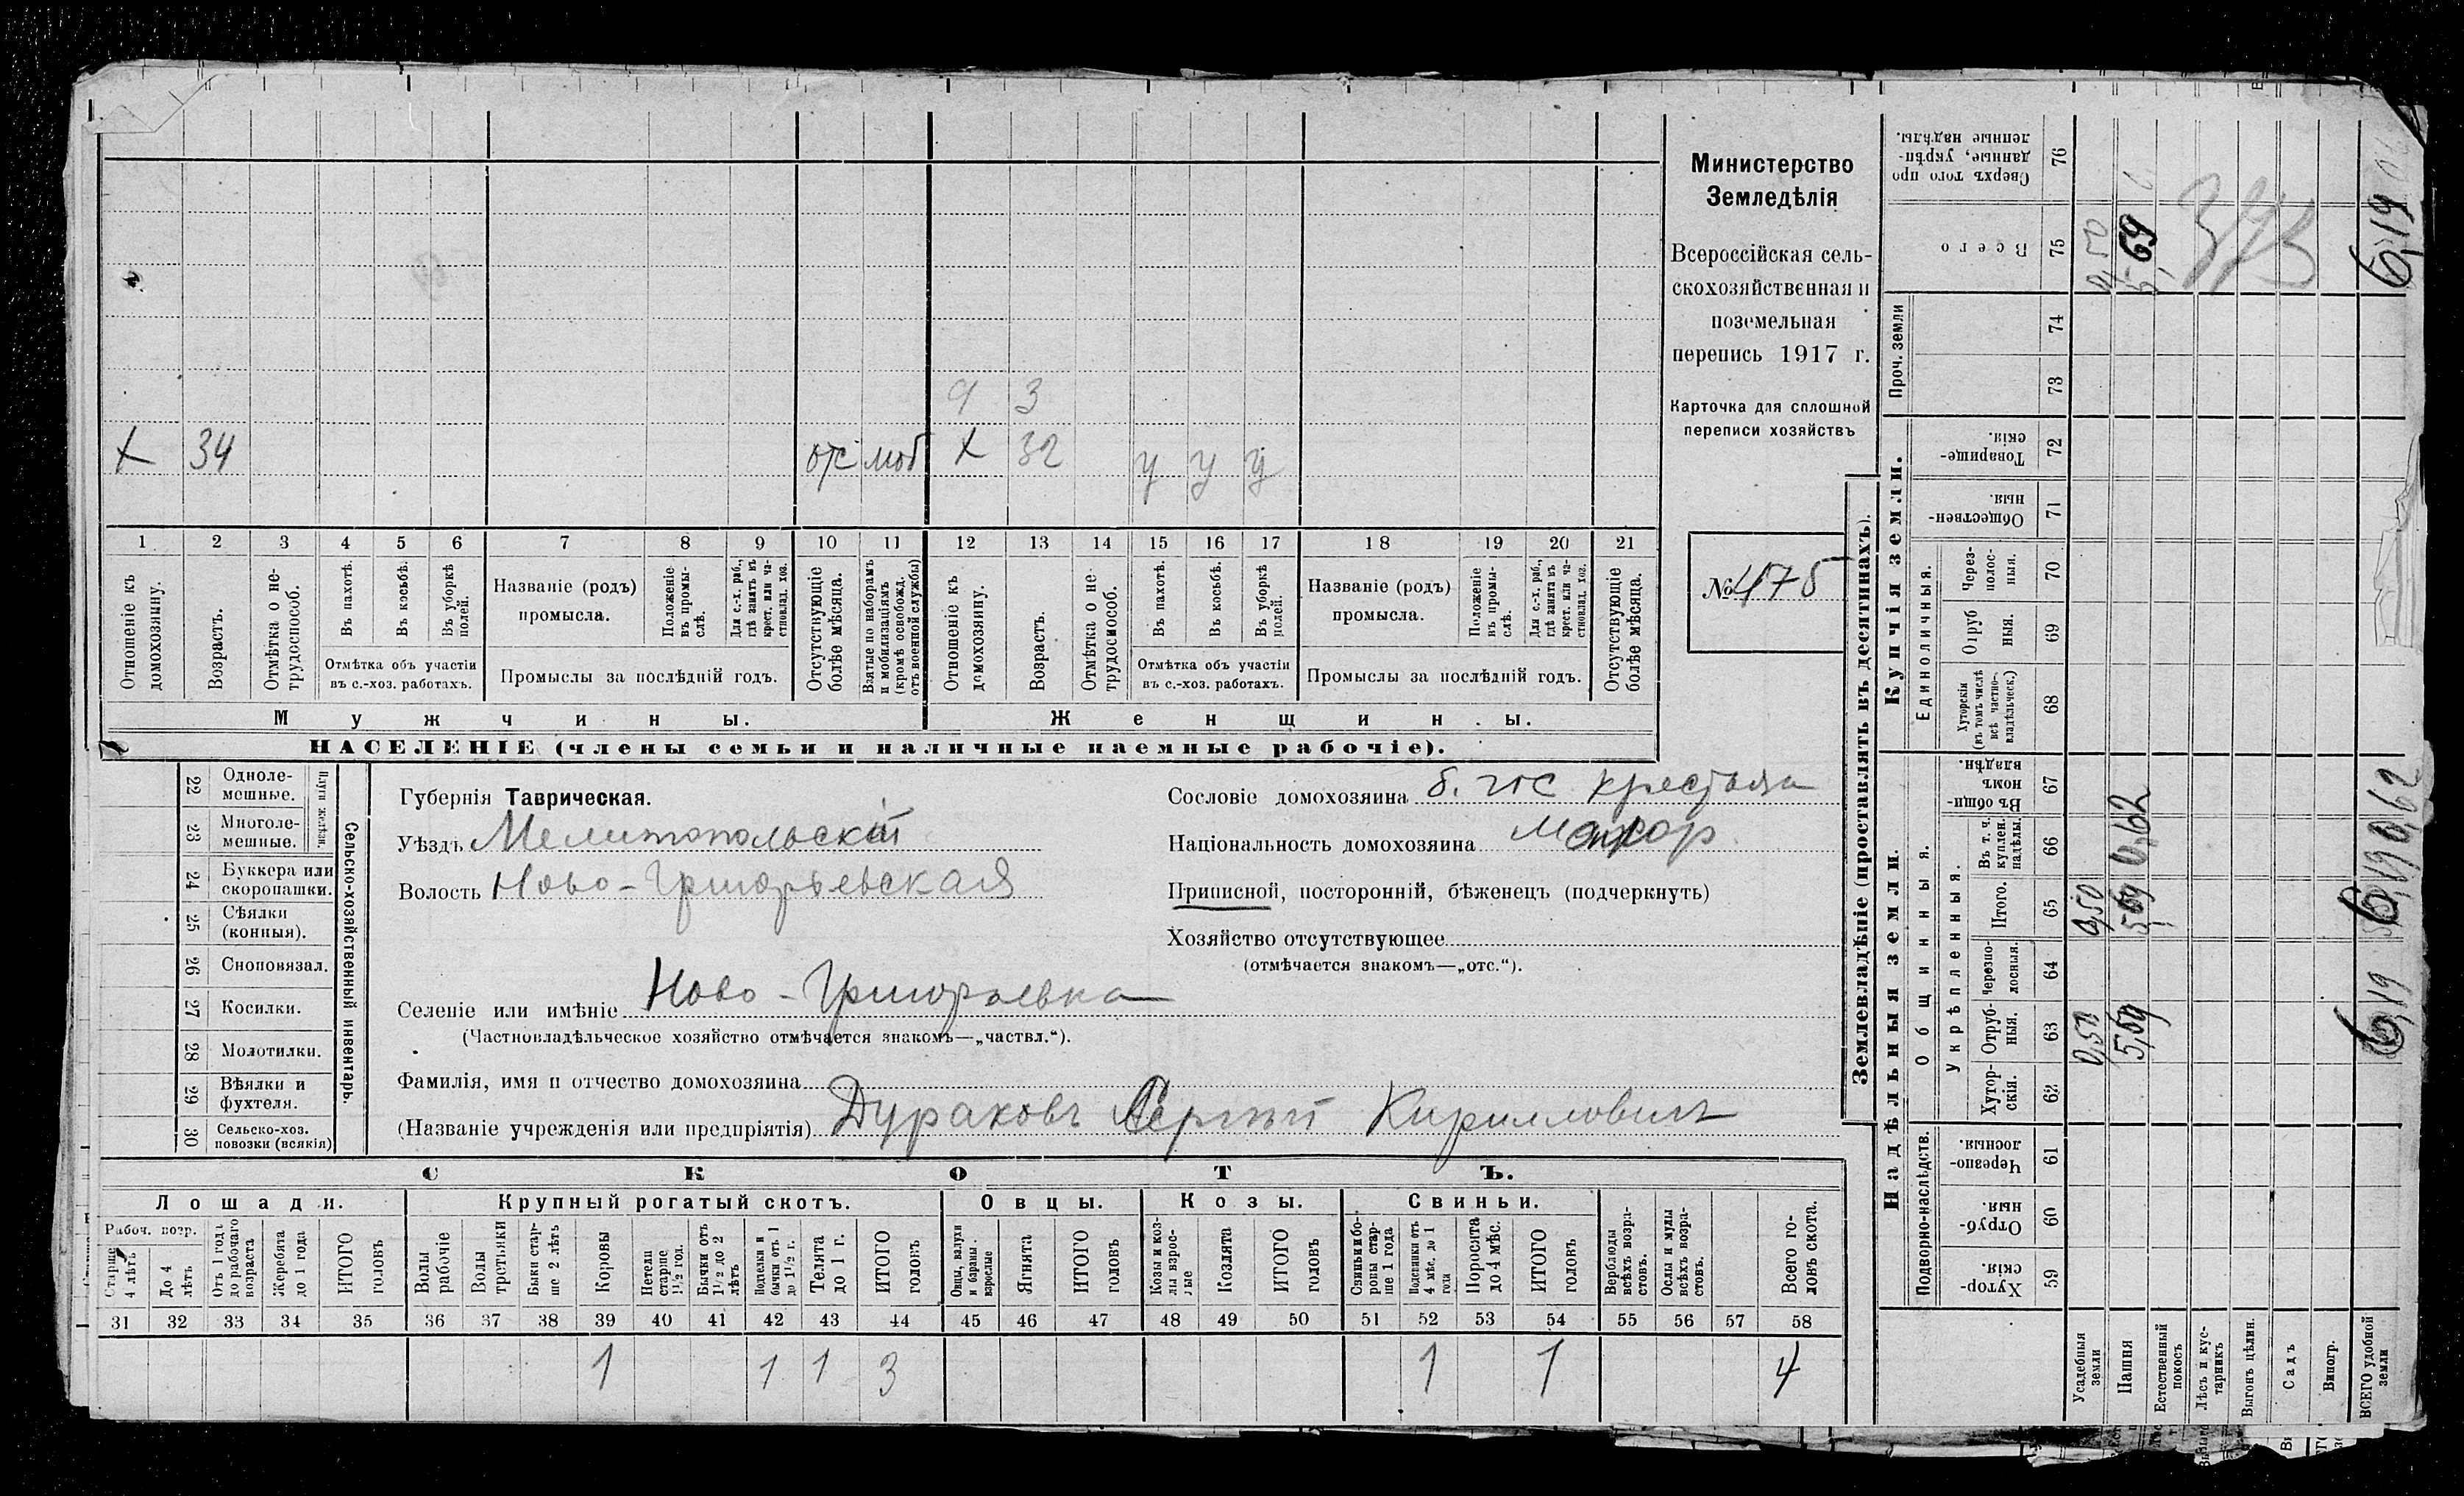 Министерство
Земледѣлія
Всероссійская сель-
скохозяйственная и
поземельная
перепись 1917 г.
Карточка для сплошной
переписи хозяйствъ
№ 475
9 3
х 34 отс моб х 32 у у у
1 2 3 4 5 6 7 8 9 10 11 12 13 14 15 16 17 18 19 20 21
Отношеніе къ домохозяину.
Возрастъ.
Отмѣтка о не-трудоспособ.
Въ пахотѣ.
Въ косьбѣ.
Въ уборкѣ полей.
Отмѣтка объ участіи
въ с.-хоз. работахъ.
Названіе (родъ)
промысла.
Положеніе въ промы-слѣ.
Для с.-х. раб., гдѣ занятъ въ крест. или ча-стновлад. хоз.
Промыслы за послѣдній годъ.
Отсутствующіе болѣе мѣсяца.
Взятые по наборамъ и мобилизаціямъ (кромѣ освобожд. отъ военной службы)
Отношеніе къ домохозяину.
Возрастъ.
Отмѣтка о не трудоспособ.
Въ пахотѣ.
Въ косьбѣ.
Въ уборкѣ полей.
Отмѣтка объ участіи
въ с.-хоз. работахъ.
Названіе (родъ)
промысла.
Положеніе въ промы-слѣ.
Для с.-х. раб., гдѣ занята въ крест. или ча-стновлад. хоз.
Промыслы за послѣдній годъ.
Отсутствующіе болѣе мѣсяца.
Мужчины. Женщины.
НАСЕЛЕНІЕ (члены семьи и наличные наемные рабочіе).
Сельско-хозяйственный инвентарь.
Плуги желѣзн.
22 Одноле-мешные.
23 Многоле-мешные.
24 Буккера или скоропашки.
25 Сѣялки (конныя).
26 Сноповязал.
27 Косилки.
28 Молотилки.
29 Вѣялки и фухтеля.
30 Сельско-хоз. повозки (всякія)
Губернія Таврическая.
Уѣздъ Мелитопольскій
Волость Ново-Григорьевская
Сословіе домохозяина б. гос крестьян
Національность домохозяина
Приписной, посторонній, бѣженецъ (подчеркнуть)
Хозяйство отсутствующее
(отмѣчается знакомъ—„отс.“).
Селеніе или имѣніе Ново-Григорьевка
(Частновладѣльческое хозяйство отмѣчается знакомъ—„частвл.“).
Фамилія, имя и отчество домохозяина
(Названіе учрежденія или предпріятія) Дураковъ Сергѣй Кирилловичъ
СКОТЪ.
Лошади. Крупный рогатый скотъ. Овцы. Козы. Свиньи.
Рабоч. возр.
Старше 4 лѣтъ
До 4 лѣтъ
Отъ 1 года до рабочаго возраста
Жеребята до 1 года
ИТОГО головъ
Волы рабочіе
Волы третьяки
Быки стар-ше 2 лѣтъ
Коровы
Нетели старше 1½ год.
Бычки отъ 1½ до 2 лѣтъ
Подтелки и бычки отъ 1 до 1½ г.
Телята до 1 г.
ИТОГО головъ
Овцы, валухи и бараны взрослые
Ягнята
ИТОГО головъ
Козы и коз-лы взрос-лые
Козлята
ИТОГО головъ
Свиньи и бо-ровы стар-ше 1 года
Подсвинки отъ 4 мѣс. до 1 года
Поросята до 4 мѣс.
ИТОГО головъ
Верблюды всѣхъ возра-стовъ.
Ослы и мулы всѣхъ возра-стовъ.
Всего го-ловъ скота.
31 32 33 34 35 36 37 38 39 40 41 42 43 44 45 46 47 48 49 50 51 52 53 54 55 56 57 58
1 1 1 3 1 1 4
Землевладѣніе (проставлять въ десятинахъ).
Надѣльныя земли. Купчія земли. Проч. земли
Подворно-наслѣдств. Общинныя. Единоличныя.
Укрѣпленныя.
Хутор-скія. 59
Отруб-ныя. 60
Черезпо-лосныя. 61
Хутор-скія. 62
Отруб-ныя. 63
Черезпо-лосныя. 64
Итого. 65
Въ т. ч. куплен. надѣлы. 66
Въ общи-номъ владѣн. 67
Хуторскія (въ томъ числѣ всѣ частно-владѣльческ.) 68
Отруб ныя. 69
Через-полос-ныя. 70
Обществен-ныя. 71
Товарище-скія. 72
73
74
Всего 75
Сверхъ того про данные, укрѣп-ленные надѣлы. 76
Усадебныя земли 0,50 0,50 0,50
Пашня 5,69 5,69 0,62 5,69
Естественный покосъ
Лѣсъ и кус-тарникъ
Выгонъ цѣлин.
Садъ
Виногр.
ВСЕГО удобной земли 6,19 6,19 0,62 6,19
373